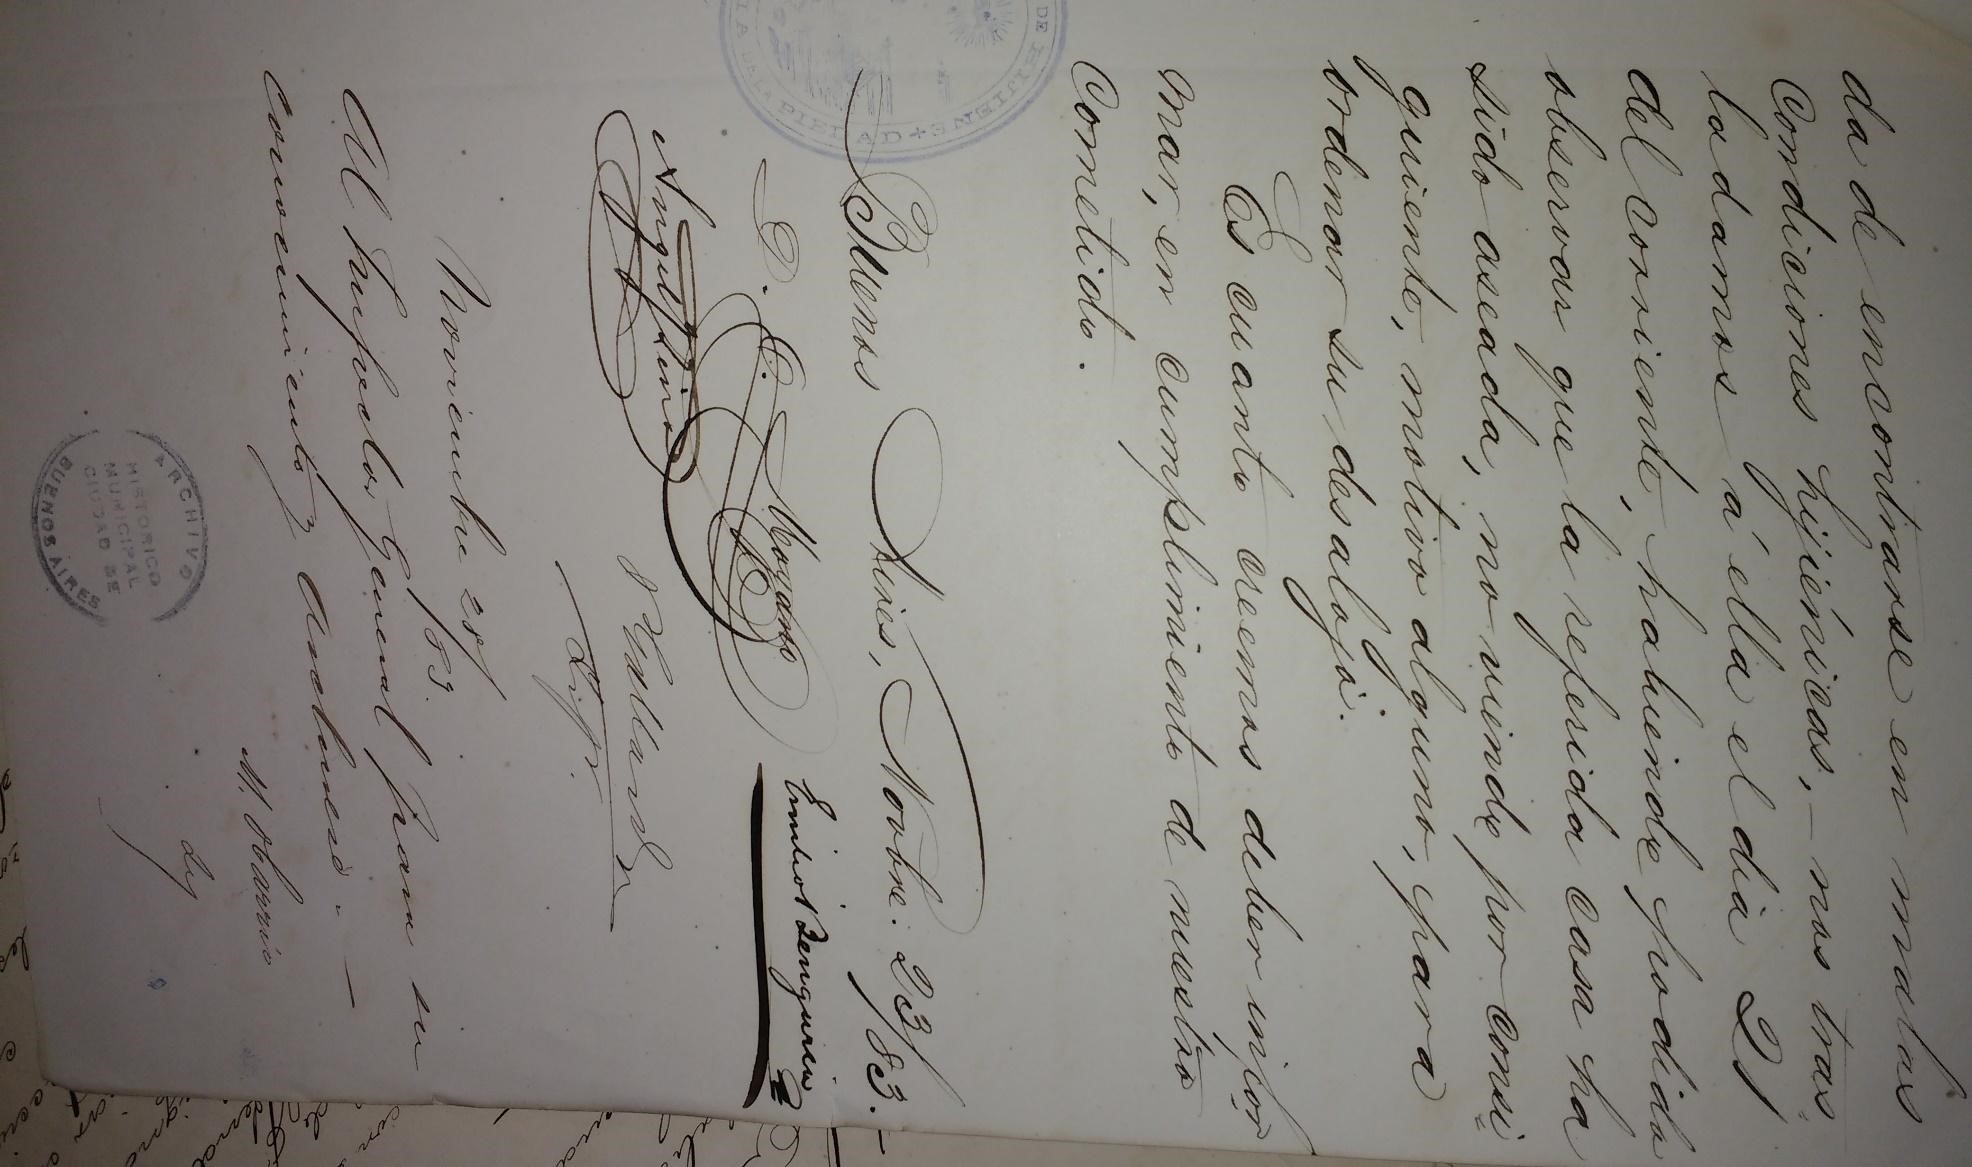 da de encontrarse en malas
Condiciones hijiénicas,- nos tras
ladamos á ella el dia 21
del corriente, habiendo podido
observar que la referida casa ha
sido aseada, no viendo por consi
guiente, motivo alguno, para
ordenar su desalojo.
Es cuanto creemos deber infor
mar, en cumplimiento de nuestro
Cometido.
DE HIJIENE + LA PIEDAD
Buenos Aires, Novbre. 23/83.-
Emilio
Angel
Noviembre 28/83.
Al Inspector General para su
conocimiento y archivese.-
M. Obarrio
ARCHIVO
HISTORICO
MUNICIPAL
CIUDAD DE
BUENOS AIRES